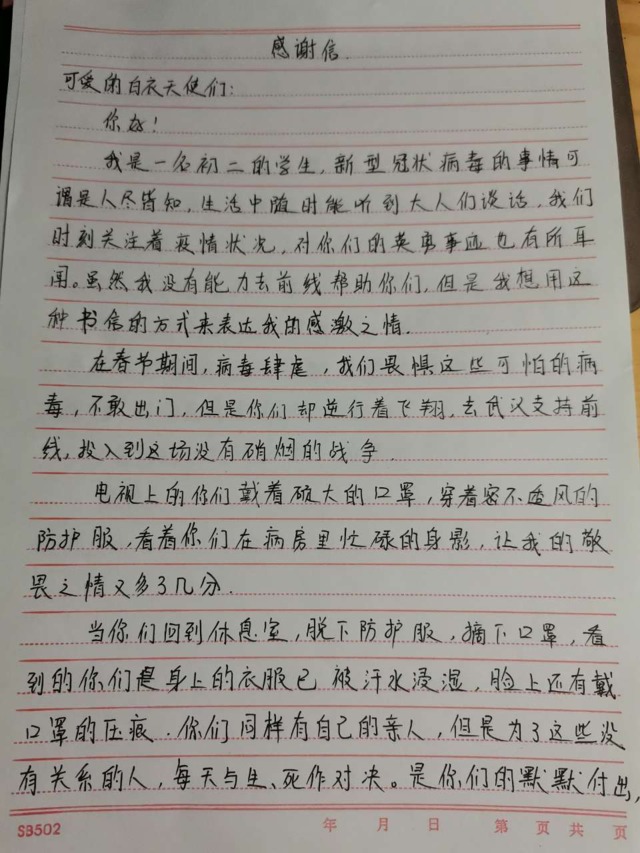 感谢信.
可爱的白衣天使们:
你好!
我是一名初二的学生,新型冠状病毒的事情可
谓是人尽皆知,生活中随时能听到大人们谈话,我们
时刻关注着疫情状况,对你们的英勇事迹也有所耳
闻。虽然我没有能力去前线帮助你们,但是我想用这
种书信的方式来表达我的感激之情.
在春节期间,病毒肆虐,我们畏惧这些可怕的病
毒,不敢出门,但是你们却逆行着飞翔,去武汉支持前
线,投入到这场没有硝烟的战争.
电视上的你们戴着硕大的口罩,穿着密不透风的
防护服,看着你们在病房里忙碌的身影,让我的敬
畏之情又多了几分.
当你们回到休息室,脱下防护服,摘下口罩,看
到的你们是身上的衣服已被汗水浸湿,脸上还有戴
口罩的压痕.你们同样有自己的亲人,但是为了这些没
有关系的人,每天与生、死作对决。是你们的默默付出,
SB502 年 月 日 第 页 共 页